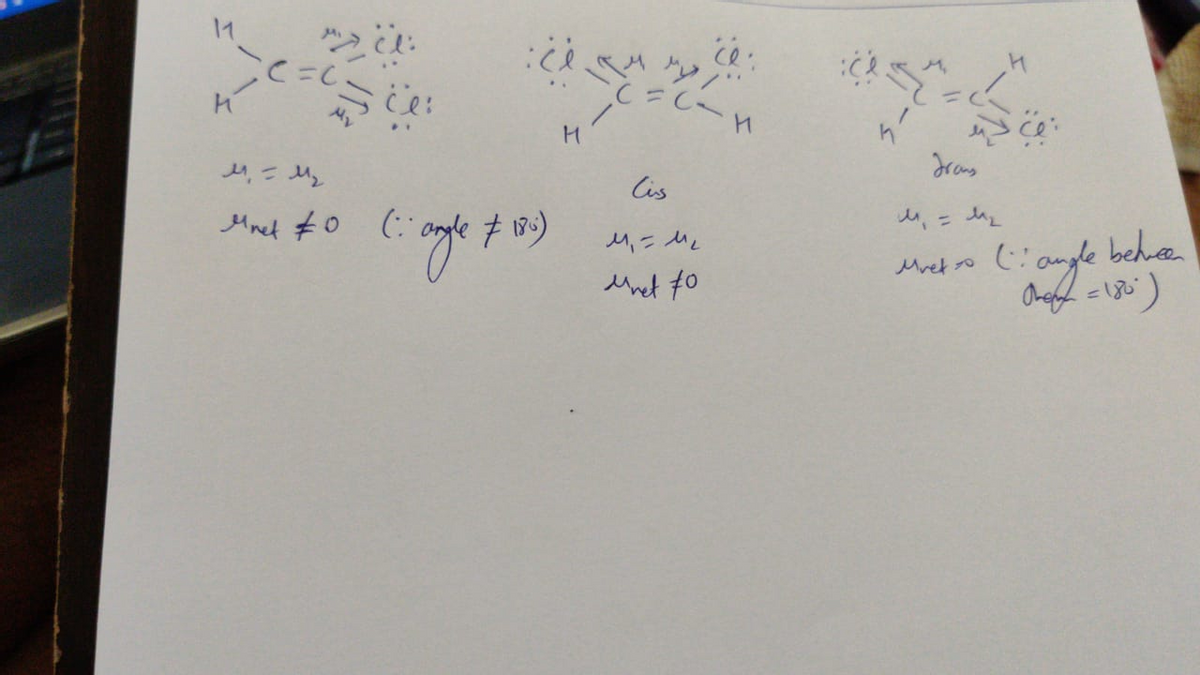 H
μ₁ :Cl:
C = C
H μ₂ :Cl:
μ₁ = μ₂
μnet ≠ 0 (∵ angle ≠ 180°)
:Cl μ₁ μ₂ Cl:
C = C
H H
Cis
μ₁ = μ₂
μnet ≠ 0
:Cl μ₁ H
C = C
H μ₂ Cl:
trans
μ₁ = μ₂
μnet = 0 (∵ angle between
them = 180°)